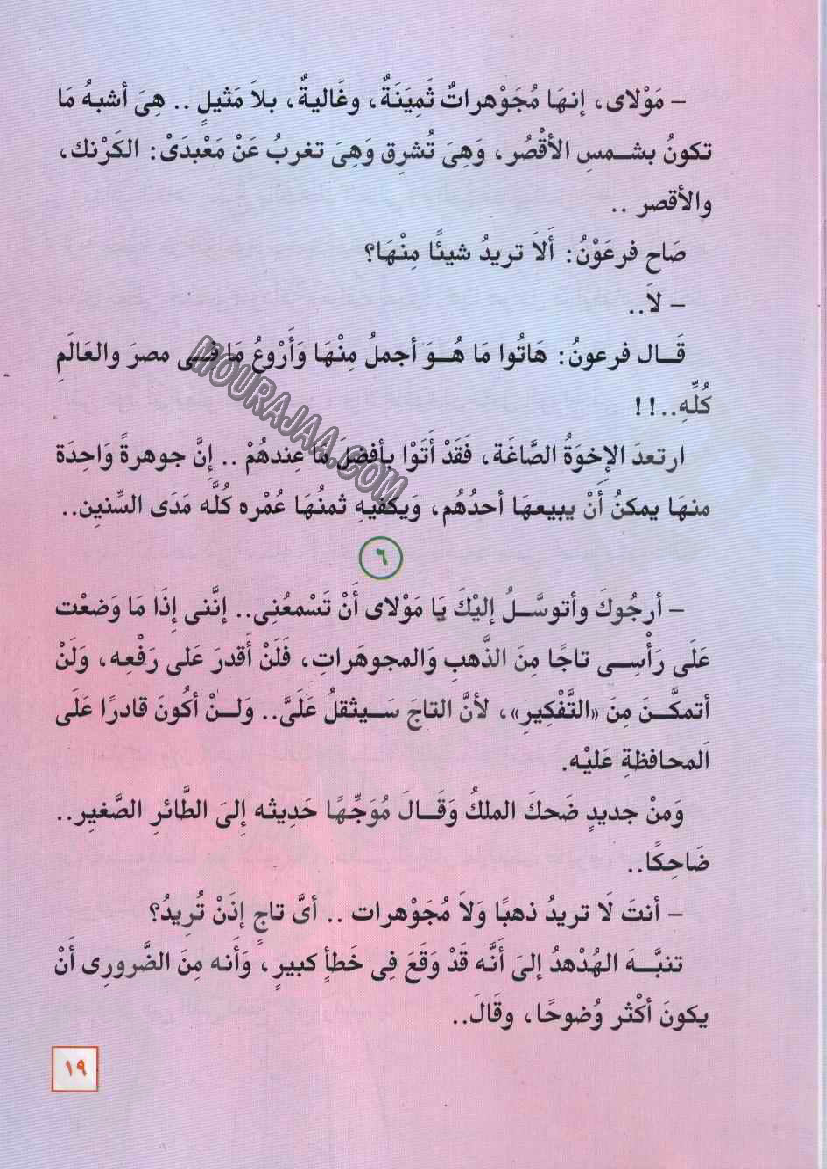 – مَوْلاى، إنهَا مُجَوْهراتٌ ثَمِينَةٌ، وغَاليةٌ، بلاَ مَثيلٍ .. هِىَ أشبهُ مَا
تكونُ بشمسِ الأقْصُر، وَهِىَ تُشرِق وَهِىَ تغربُ عَنْ مَعْبدَىْ: الكَرْنك،
والأقصر ..
صَاح فرعَوْنُ: أَلاَ تريدُ شيئًا مِنْهَا؟
– لاَ..
قَال فرعونُ: هَاتُوا مَا هُوَ أجملُ مِنْهَا وَأَروْعُ مَا فى مصرَ والعَالَمِ
كُلِّهِ..!!
ارتعدَ الإخوَةُ الصَّاغَة، فَقَدْ أَتَوْا بأفضلَ مَا عِندهُمْ .. إنَّ جوهرةً وَاحِدَة
منهَا يمكنُ أَنْ يبيعهَا أحدُهُم، وَيكفيهِ ثمنُهَا عُمْره كُلَّه مَدَى السِّنين..
٦
– أرجُوكَ وأتوسَّلُ إليْكَ يَا مَوْلاى أَنْ تَسْمعُنِى.. إنَّنى إذَا مَا وَضعْت
عَلَى رَأْسِى تاجًا مِنَ الذَّهبِ وَالمجوهَراتِ، فَلَنْ أَقدرَ عَلى رَفْعِه، وَلَنْ
أتمكَّنَ مِنَ «التَّفْكِيرِ»، لأنَّ التاج سَيثقلُ عَلَىَّ.. وَلنْ أكُونَ قادرًا عَلَى
اَلمحافظةِ عَليْه.
وَمنْ جديدٍ ضَحكَ الملكُ وَقَالَ مُوَجِّهًا حَدِيثه إلىَ الطَّائرِ الصَّغيرِ..
ضَاحِكًا..
– أنتَ لَا تريدُ ذهبًا وَلاَ مُجَوْهرات .. أىَّ تاجٍ إذَنْ تُريدُ؟
تنبَّهَ الهُدْهدُ إلىَ أنَّه قَدْ وَقَعَ فِى خَطأٍ كبيرٍ، وَأَنه مِنَ الضَّرورِى أَنْ
يكونَ أكْثر وُضوحًا، وقَالَ..
١٩
MOURAJAA.COM